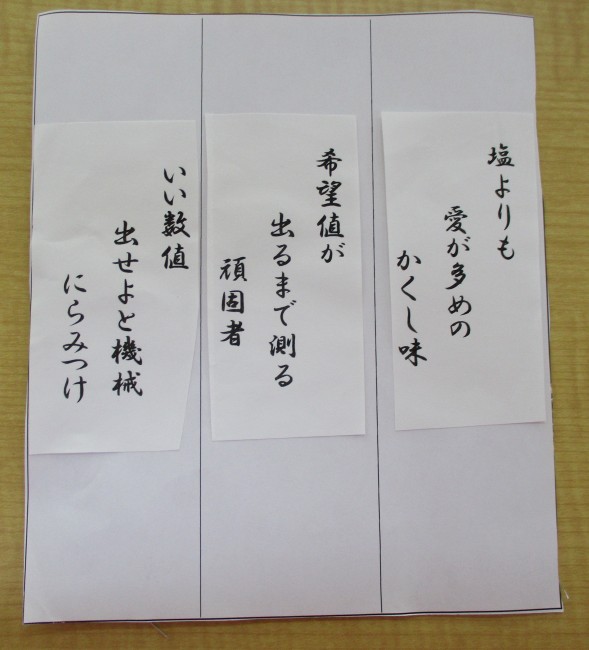 塩よりも
愛が多めの
かくし味
希望値が
出るまで測る
頑固者
いい数値
出せよと機械
にらみつけ